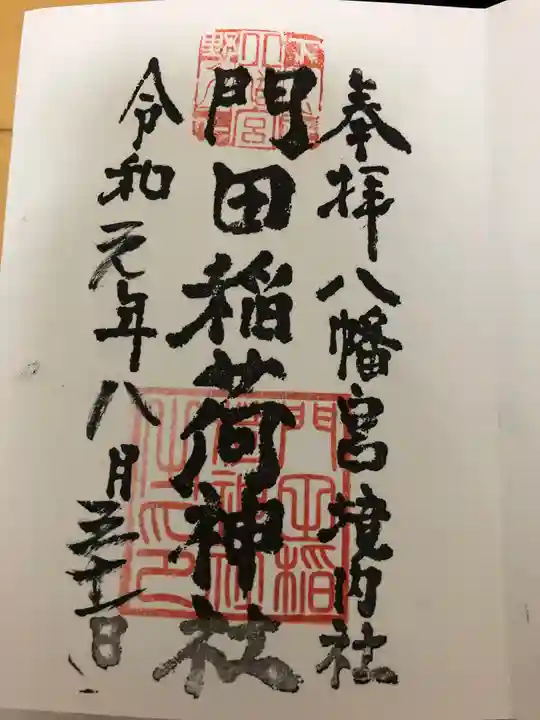 奉拝八幡宮境内社
門田稲荷神社
令和元年八月三十一日